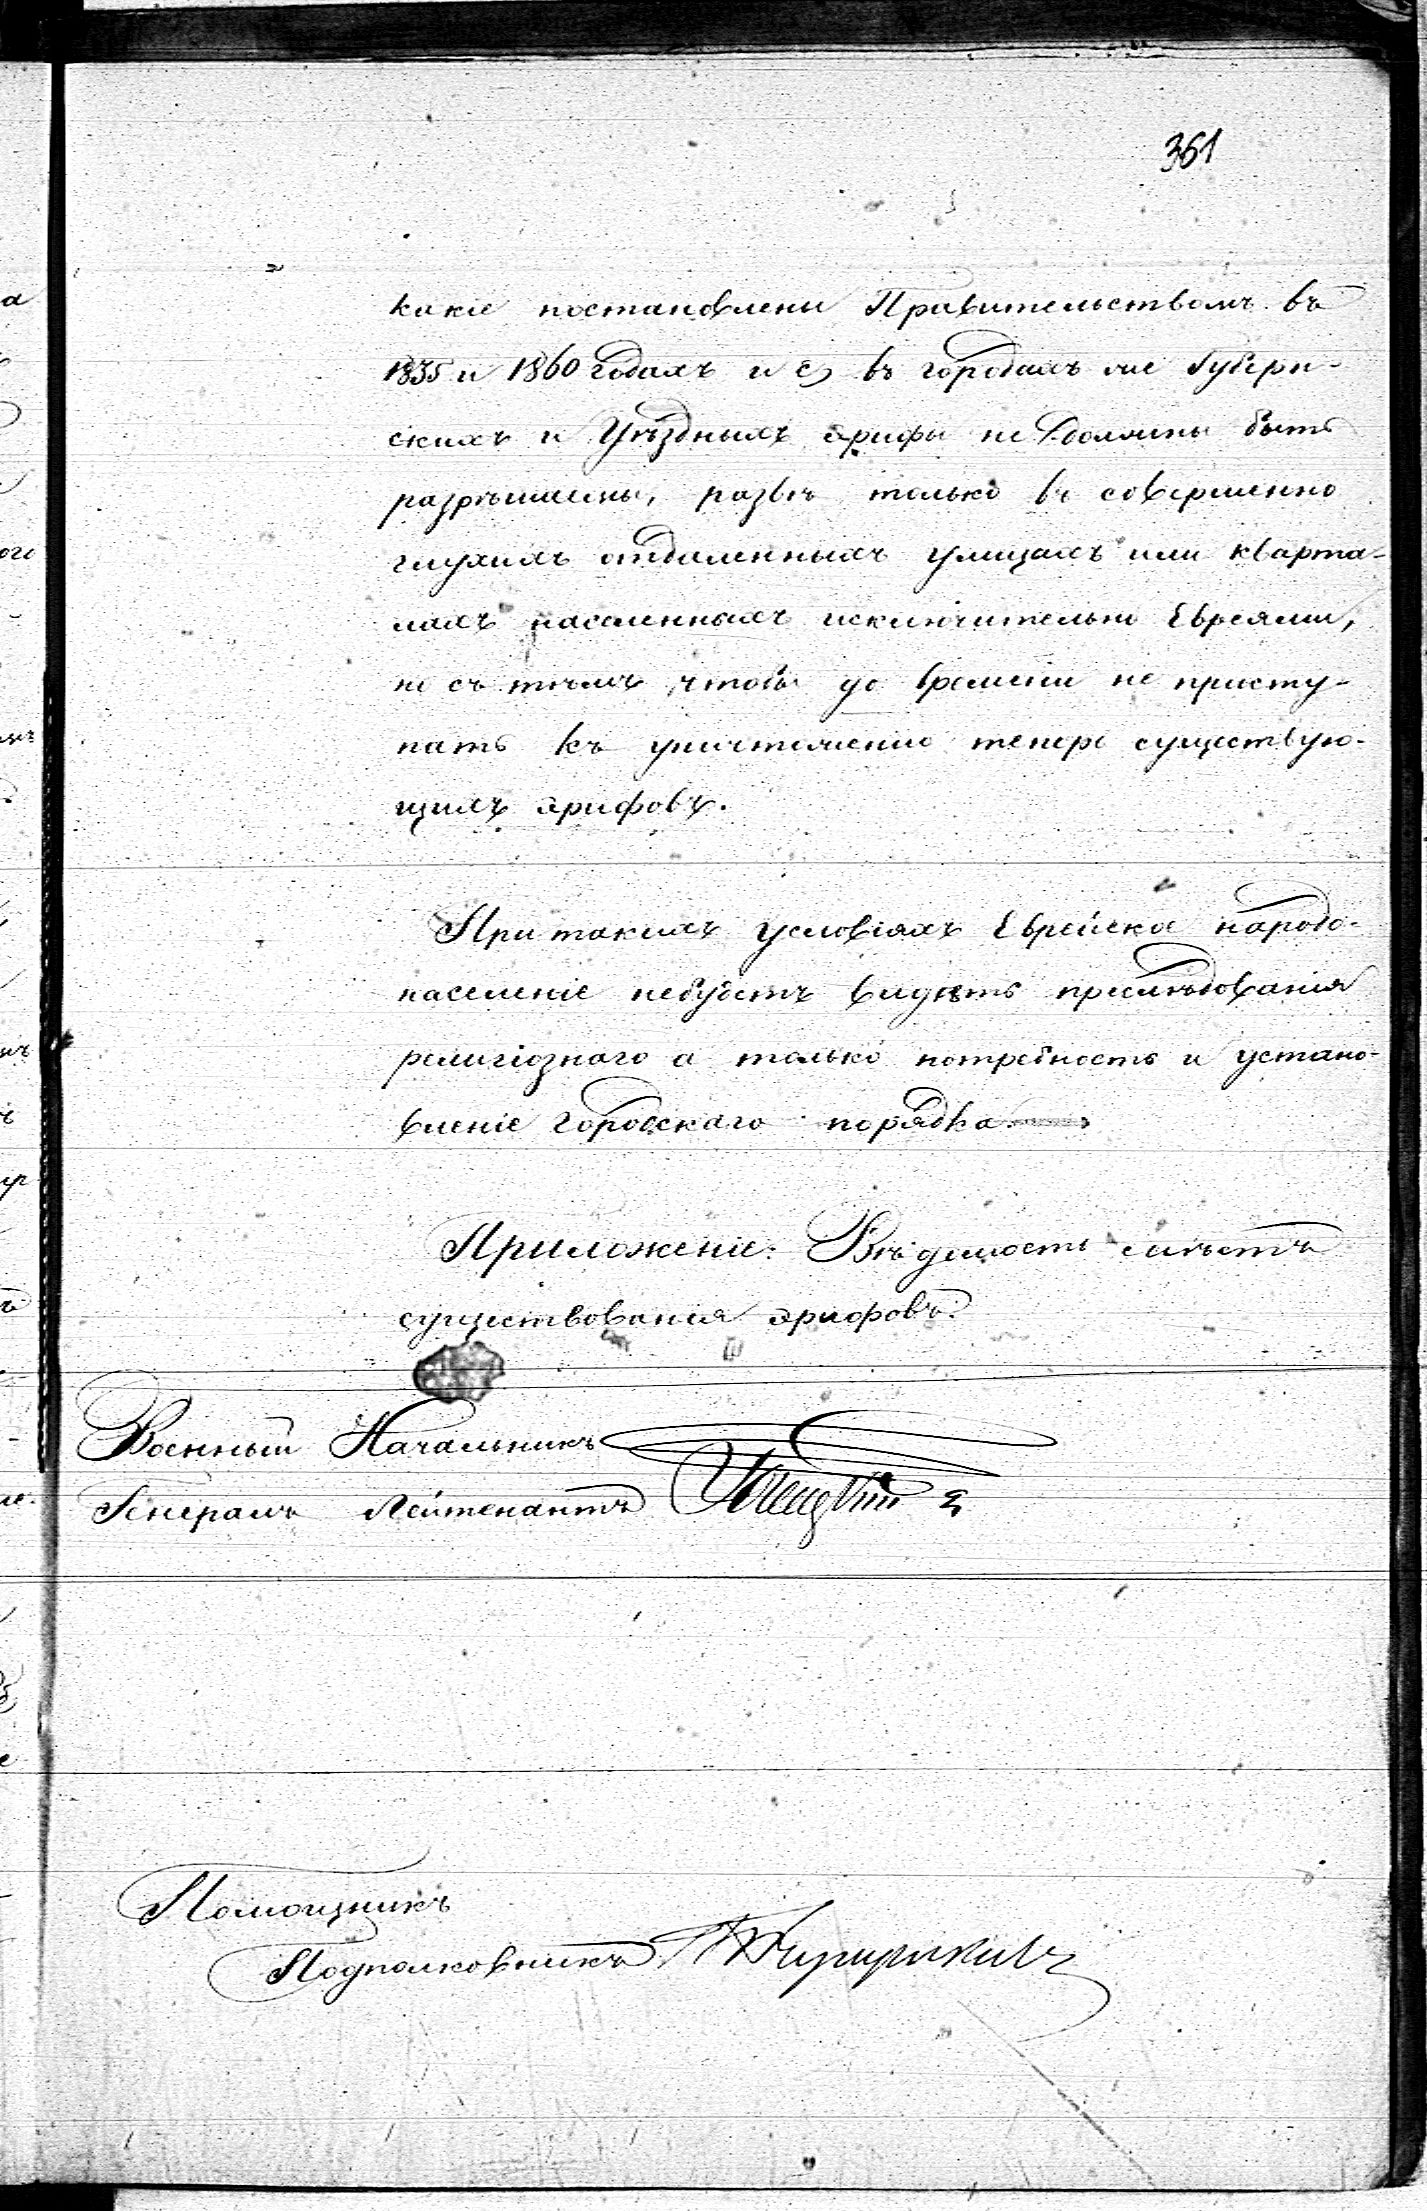 361
какіе постановлены Правительствомъ въ
1835 и 1860 годахъ и въ городахъ Губерн-
скихъ и Уѣздныхъ эрифы не должны быть
разрѣшаемы, развѣ только въ совершенно
глухихъ отдаленныхъ улицахъ или кварта-
лахъ населенныхъ исключительно Евреями,
но съ тѣмъ чтобы до времени не присту-
пать къ уничтоженію теперь существую-
щихъ эрифовъ.
При такихъ условіяхъ Еврейское народо-
населеніе небудетъ видѣть преслѣдованія
религіознаго а только потребность и устано-
вленіе городскаго порядка.
Приложеніе: Вѣдомость мѣстъ
существованія эрифовъ.
Военный Начальникъ
Генералъ Лейтенантъ
Помощникъ
Подполковникъ